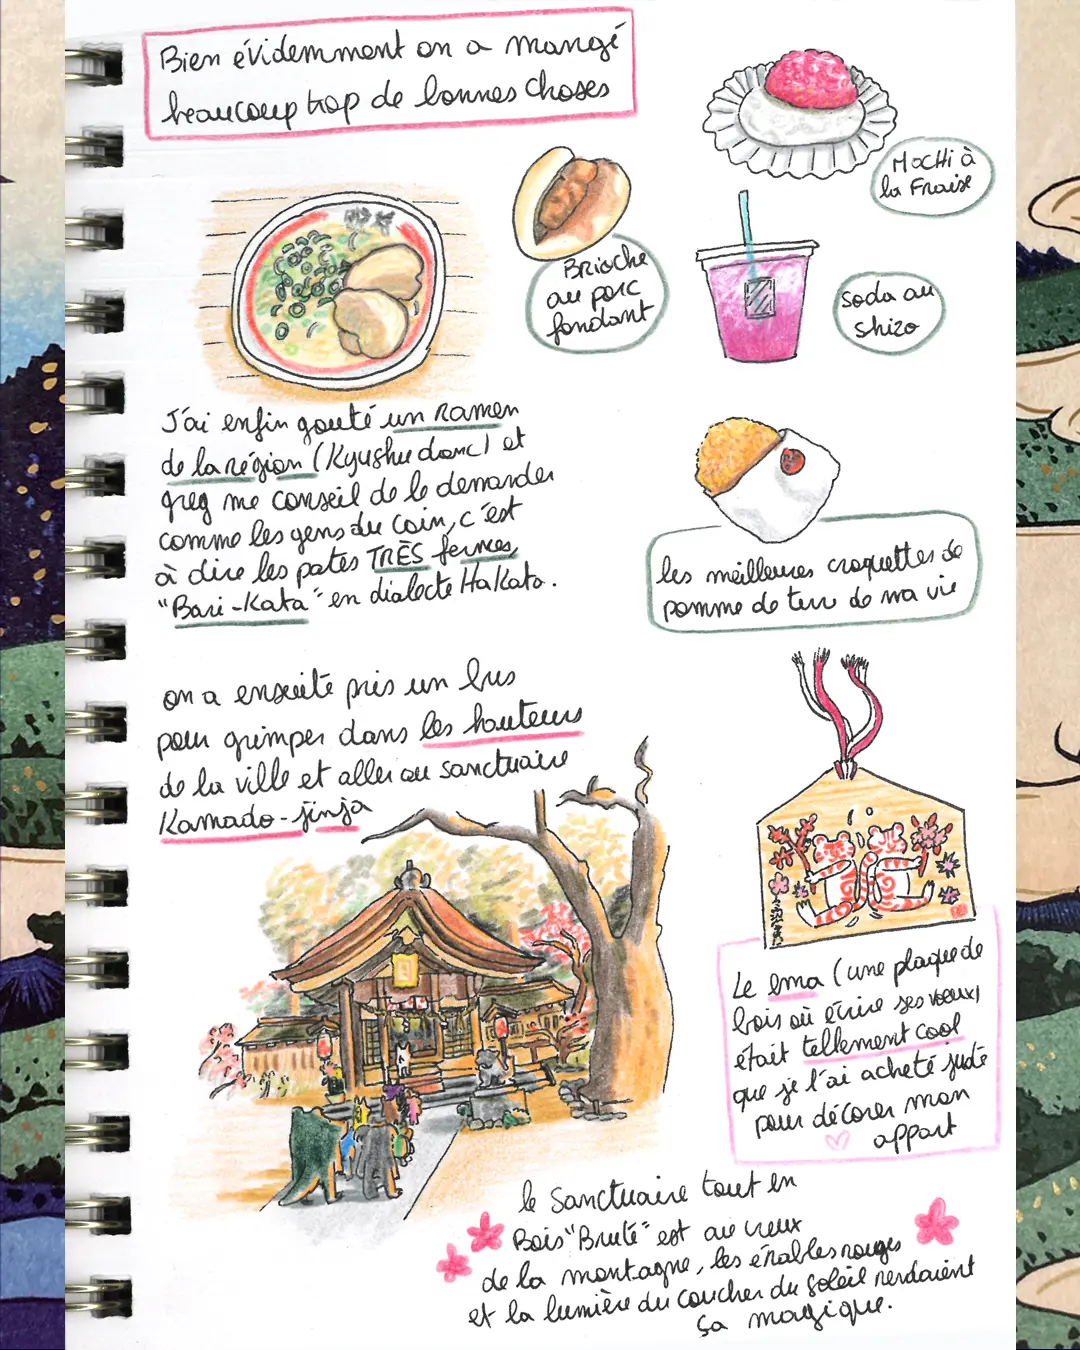 Bien évidemment on a mangé
beaucoup trop de bonnes choses
Mochi à
la Fraise
Brioche
au porc
fondant
Soda au
shizo
J'ai enfin gouté un ramen
de la région (Kyushu donc) et
greg me conseil de le demander
comme les gens du coin, c'est
à dire les pates TRÈS fermes,
"Bari-Kata" en dialecte Hakata.
les meilleures croquettes de
pomme de terre de ma vie
on a ensuite pris un bus
pour grimper dans les hauteurs
de la ville et aller au sanctuaire
Kamado-jinja
Le ema (une plaque de
bois où écrire ses voeux)
était tellement cool
que je l'ai acheté juste
pour décorer mon
appart
le Sanctuaire tout en
Bois "Brulé" est au creux
de la montagne, les érables rouges
et la lumière du coucher du soleil rendaient
ça magique.